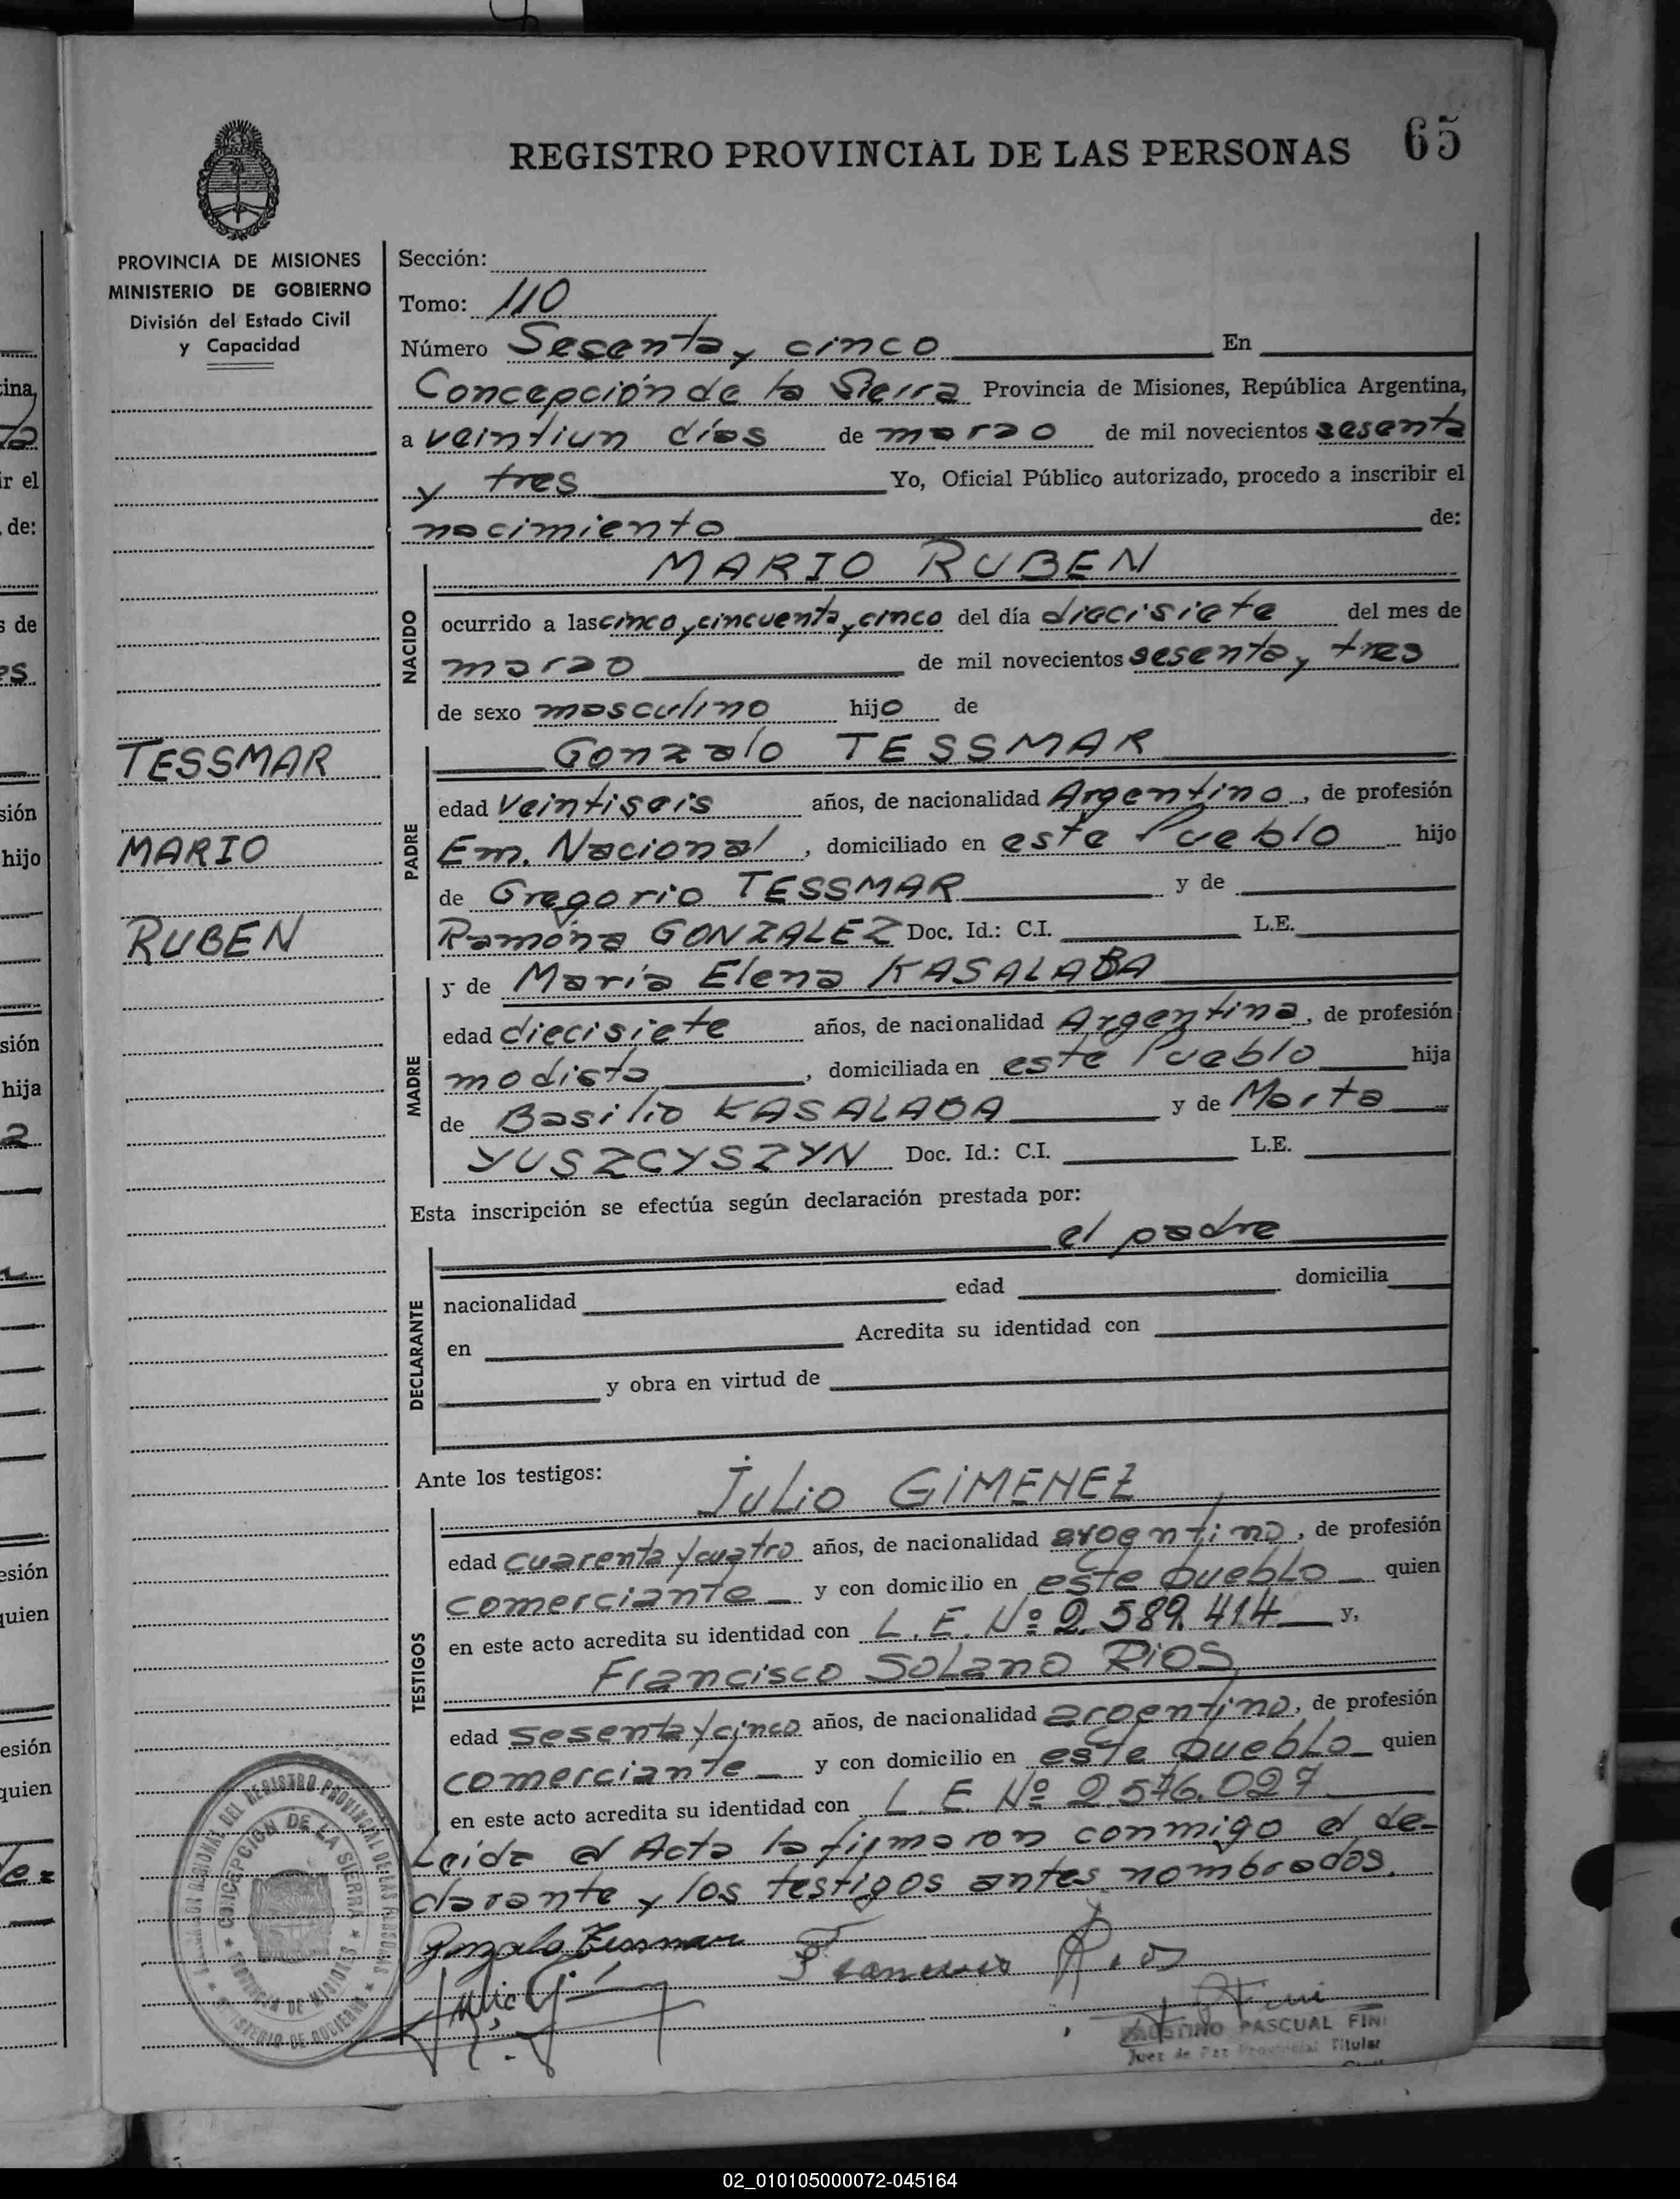 REGISTRO PROVINCIAL DE LAS PERSONAS 65
PROVINCIA DE MISIONES
MINISTERIO DE GOBIERNO
División del Estado Civil
y Capacidad
TESSMAR
MARIO
RUBEN
Sección:
Tomo: 110
Número Sesenta y cinco En
Concepción de la Sierra Provincia de Misiones, República Argentina,
a veintiun días de marzo de mil novecientos sesenta
y tres Yo, Oficial Público autorizado, procedo a inscribir el
nacimiento de:
MARIO RUBEN
NACIDO
ocurrido a las cinco y cincuenta y cinco del día diecisiete del mes de
marzo de mil novecientos sesenta y tres
de sexo masculino hijo de
Gonzalo TESSMAR
PADRE
edad veintiseis años, de nacionalidad Argentino, de profesión
Em. Nacional, domiciliado en este Pueblo hijo
de Gregorio TESSMAR y de
Ramona GONZALEZ Doc. Id.: C.I. L.E.
y de María Elena KASALABA
MADRE
edad diecisiete años, de nacionalidad Argentina, de profesión
modista, domiciliada en este Pueblo hija
de Basilio KASALABA y de Marta
YUSZCYSZYN Doc. Id.: C.I. L.E.
Esta inscripción se efectúa según declaración prestada por:
el padre
DECLARANTE
nacionalidad edad domicilia
en Acredita su identidad con
y obra en virtud de
Ante los testigos: Julio GIMENEZ
TESTIGOS
edad cuarenta y cuatro años, de nacionalidad argentino, de profesión
comerciante y con domicilio en este pueblo quien
en este acto acredita su identidad con L.E. Nº 2.589.414 y,
Francisco Solano RIOS
edad sesenta y cinco años, de nacionalidad argentino, de profesión
comerciante y con domicilio en este pueblo quien
en este acto acredita su identidad con L.E. Nº 2.576.027
Leida el Acta la firmaron conmigo el de-
clarante y los testigos antes nombrados.
Gonzalo Tessmar Francisco Rios
Julio
FAUSTINO PASCUAL FINI
Juez de Paz Provincial Titular
CONCEPCION DE LA SIERRA
PROVINCIA DE MISIONES
MINISTERIO DE GOBIERNO
DEL REGISTRO PROVINCIAL DE LAS PERSONAS
02_010105000072-045164